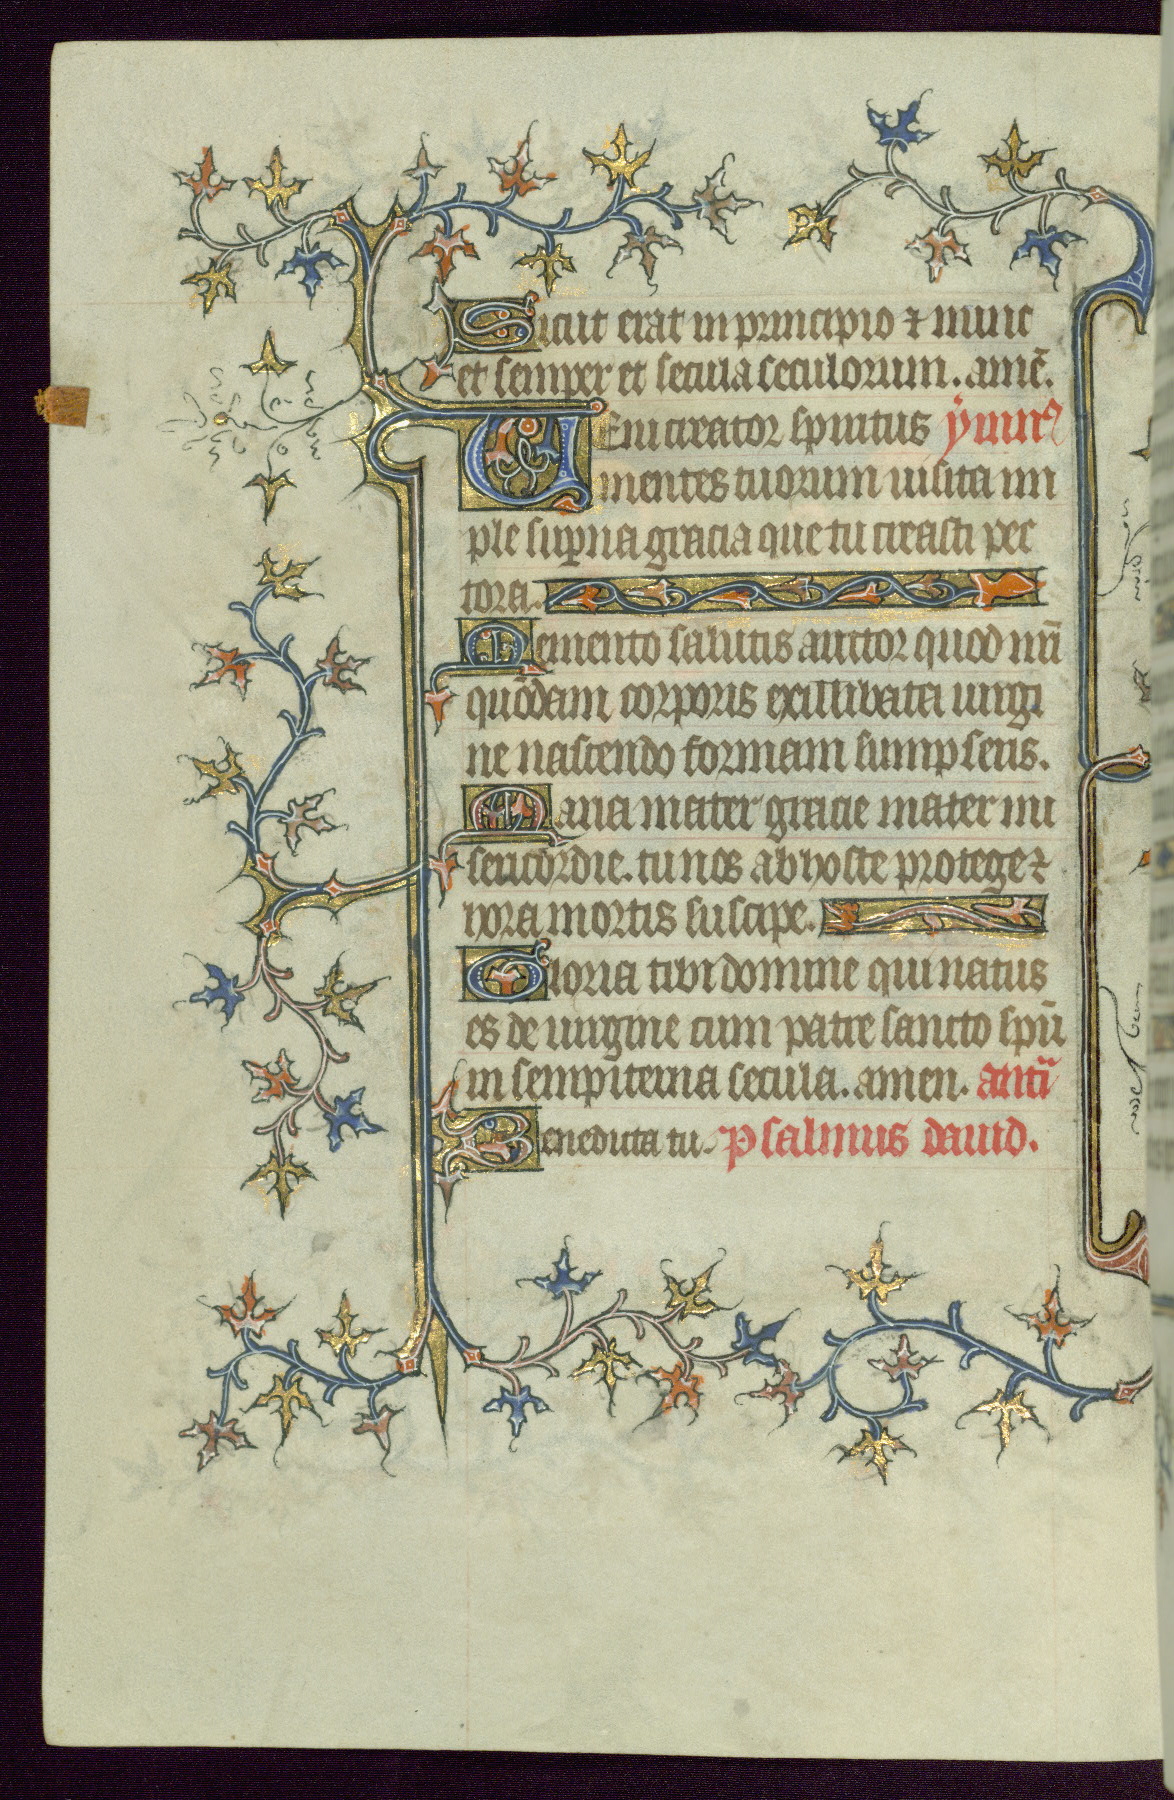 Sicut erat in principio ⁊ nunc
et semper et secula seculorum. amē.
Veni creator spiritus ẏmnꝰ
mentes tuorum uisita im
ple suꝑna gracia que tu creasti pec
tora.
Memento salutis auctor quod nr̄i
quōdam corporis ex illibata uirgi
ne nascendo formam sumpseris.
Maria mater gracie mater mi
sericordie. tu nos ab hoste protege ⁊
hora mortis suscipe.
Gloria tibi domine qui natus
es de uirgine cum patre sancto spū
in sempiterna secula. amen. antī
Benedicta tu. Psalmus dauid.